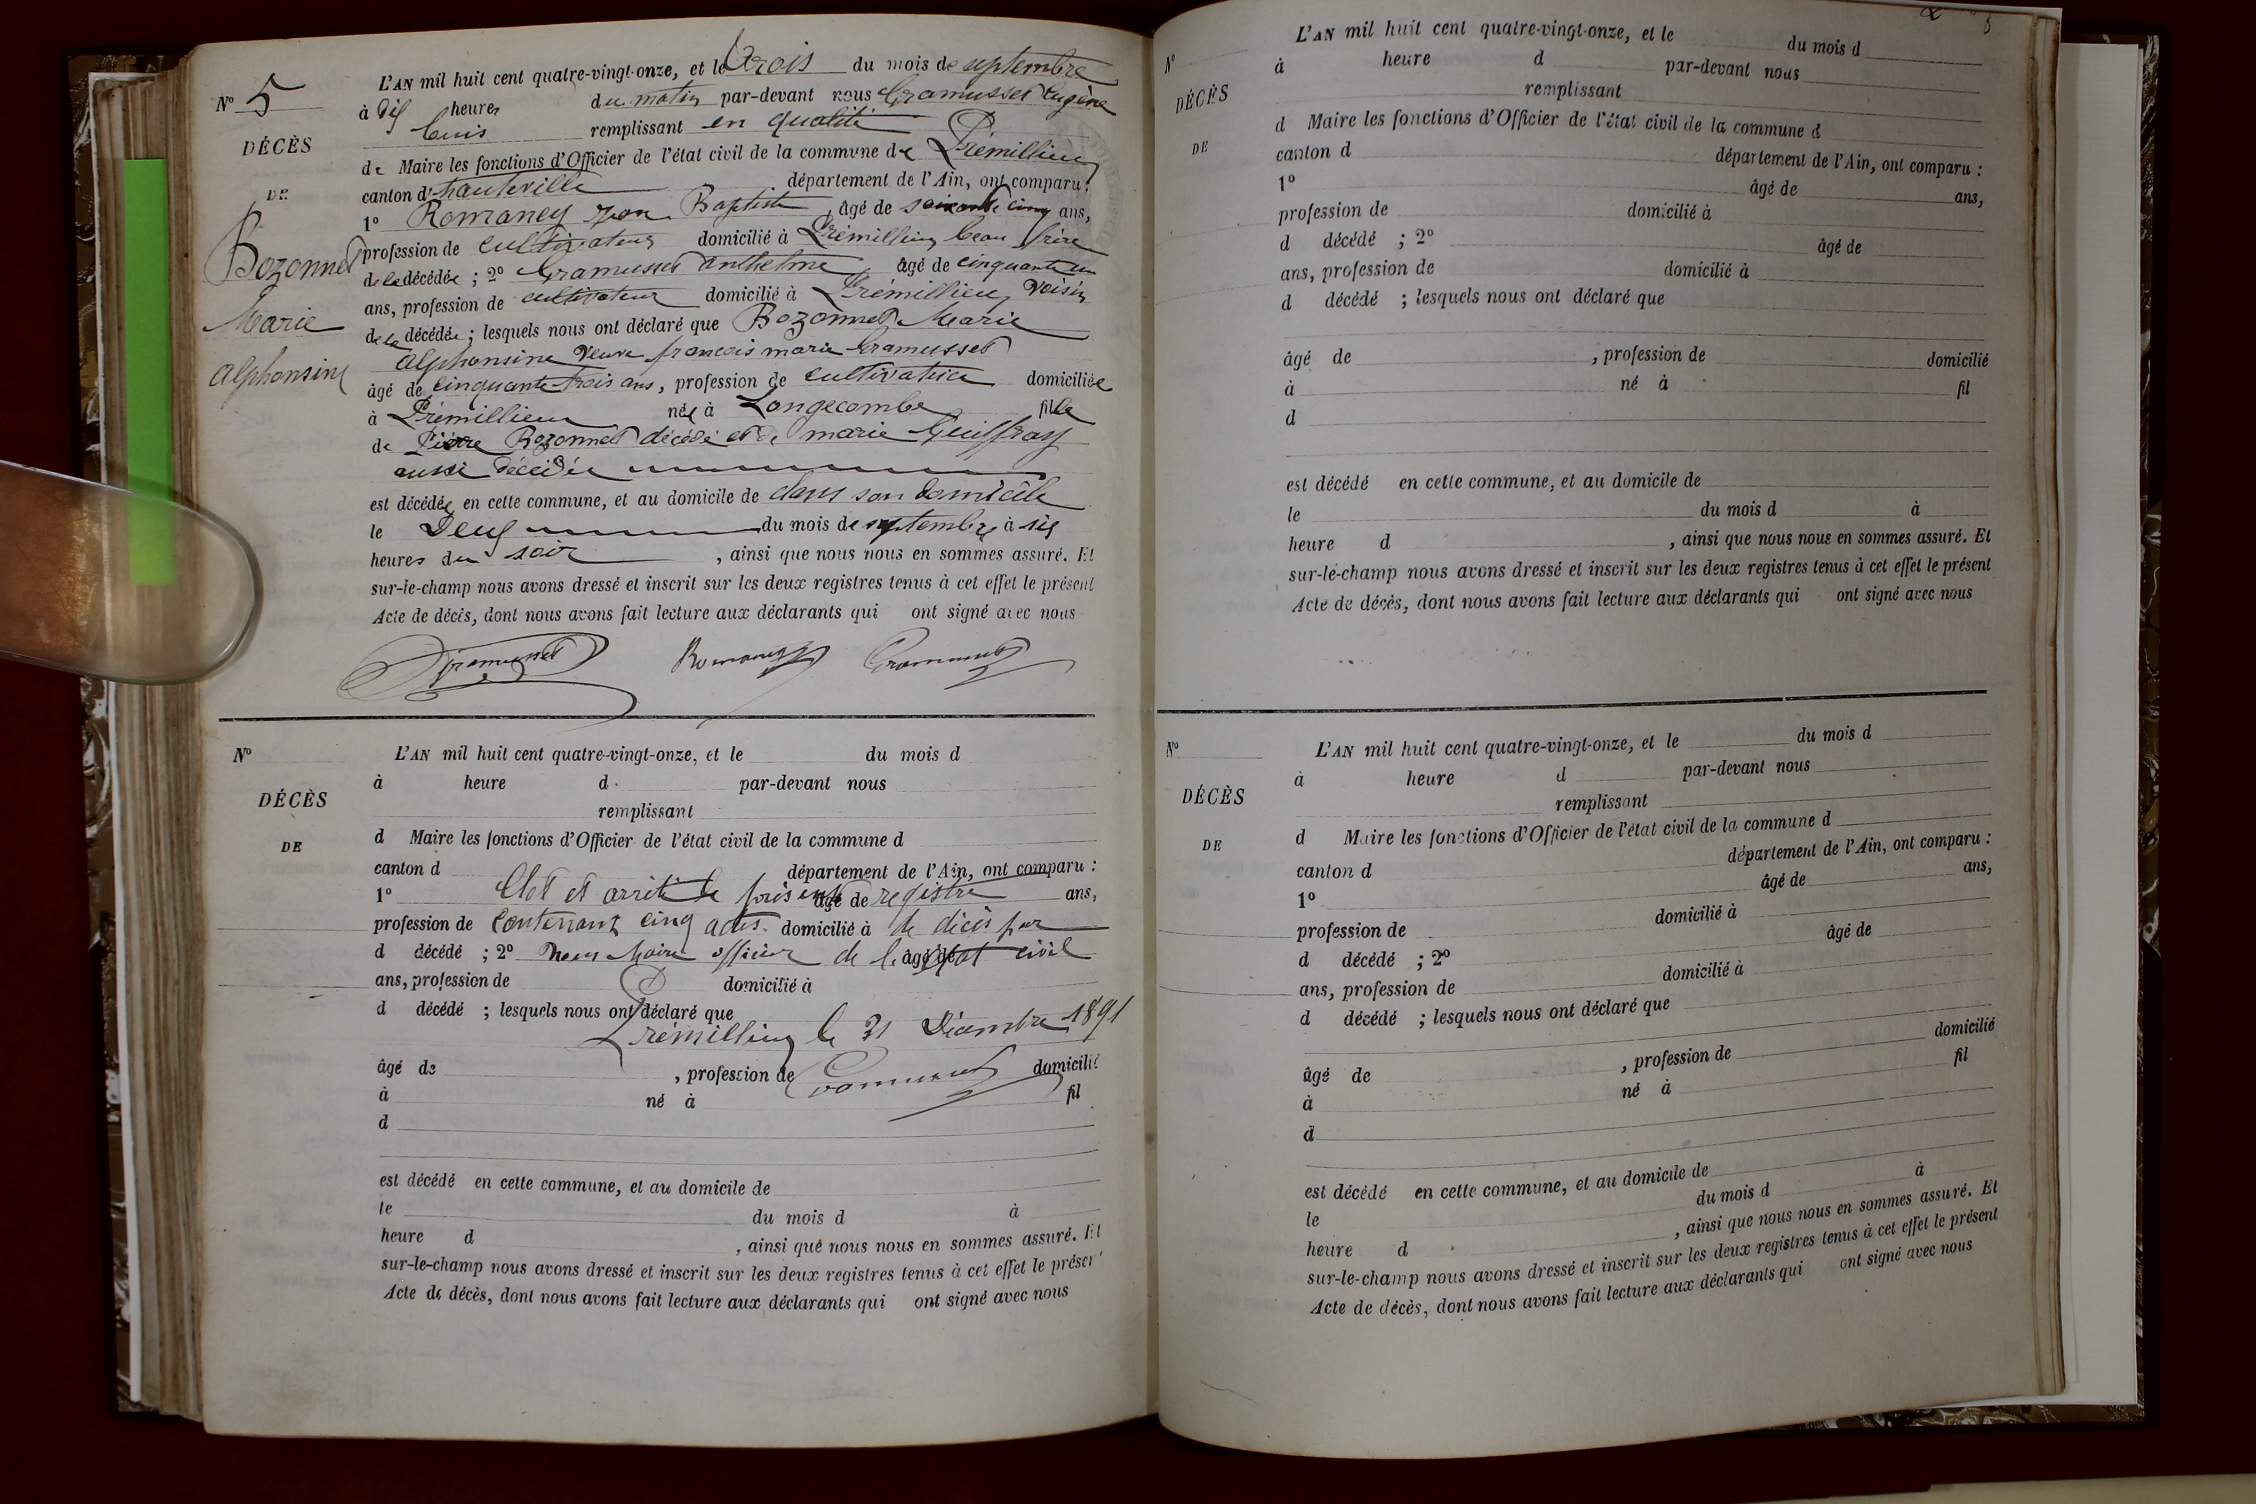 N° 5
DÉCÈS
DE
Bozonnet
Marie
alphonsine
L'AN mil huit cent quatre-vingt-onze, et le trois du mois de septembre
à dix heures du matin par-devant nous Gramusset Eugène
remplissant en qualité
de Maire les fonctions d'Officier de l'état civil de la commune de Prémillieu
canton d'hauteville département de l'Ain, ont comparu :
1° Romaney Jean Baptiste, âgé de soixante cinq ans,
profession de cultivateur domicilié à Prémillieu beau frère
de la décédée ; 2° Gramusset anthelme âgé de cinquante un
ans, profession de cultivateur domicilié à Prémillieu voisin
de la décédée ; lesquels nous ont déclaré que Bozonnet Marie
alphonsine veuve françois marie Gramusset
âgé de cinquante trois ans, profession de cultivatrice domiciliée
à Prémillieu née à Longecombe fille
de Pierre Bozonnet décédé et de marie Guiffray
aussi décédée
est décédée en cette commune, et au domicile de dans son domicile
le Deux du mois de septembre à six
heures du soir , ainsi que nous nous en sommes assuré. Et
sur-le-champ nous avons dressé et inscrit sur les deux registres tenus à cet effet le présent
Acte de décès, dont nous avons fait lecture aux déclarants qui ont signé avec nous
Gramusset Romaney Gramusset
N°
DÉCÈS
DE
L'AN mil huit cent quatre-vingt-onze, et le du mois d
à heure d par-devant nous
remplissant
d Maire les fonctions d'Officier de l'état civil de la commune d
canton d département de l'Ain, ont comparu :
1° Clot et arrêté le présent âgé de registre ans,
profession de contenant cinq actes domicilié à de décès par
d décédé ; 2° nous Maire officier de l'état âgé de civil
ans, profession de domicilié à
d décédé ; lesquels nous ont déclaré que
Prémillieu le 31 Décembre 1891
âgé de , profession de Gramusset domicilié
à né à fil
d
est décédé en cette commune, et au domicile de
le du mois d à
heure d , ainsi que nous nous en sommes assuré. Et
sur-le-champ nous avons dressé et inscrit sur les deux registres tenus à cet effet le présent
Acte de décès, dont nous avons fait lecture aux déclarants qui ont signé avec nous
N°
DÉCÈS
DE
L'AN mil huit cent quatre-vingt-onze, et le du mois d
à heure d par-devant nous
remplissant
d Maire les fonctions d'Officier de l'état civil de la commune d
canton d département de l'Ain, ont comparu :
1° âgé de ans,
profession de domicilié à
d décédé ; 2° âgé de
ans, profession de domicilié à
d décédé ; lesquels nous ont déclaré que
âgé de , profession de domicilié
à né à fil
d
est décédé en cette commune, et au domicile de
le du mois d à
heure d , ainsi que nous nous en sommes assuré. Et
sur-le-champ nous avons dressé et inscrit sur les deux registres tenus à cet effet le présent
Acte de décès, dont nous avons fait lecture aux déclarants qui ont signé avec nous
N°
DÉCÈS
DE
L'AN mil huit cent quatre-vingt-onze, et le du mois d
à heure d par-devant nous
remplissant
d Maire les fonctions d'Officier de l'état civil de la commune d
canton d département de l'Ain, ont comparu :
1° âgé de ans,
profession de domicilié à
d décédé ; 2° âgé de
ans, profession de domicilié à
d décédé ; lesquels nous ont déclaré que
âgé de , profession de domicilié
à né à fil
d
est décédé en cette commune, et au domicile de
le du mois d à
heure d , ainsi que nous nous en sommes assuré. Et
sur-le-champ nous avons dressé et inscrit sur les deux registres tenus à cet effet le présent
Acte de décès, dont nous avons fait lecture aux déclarants qui ont signé avec nous